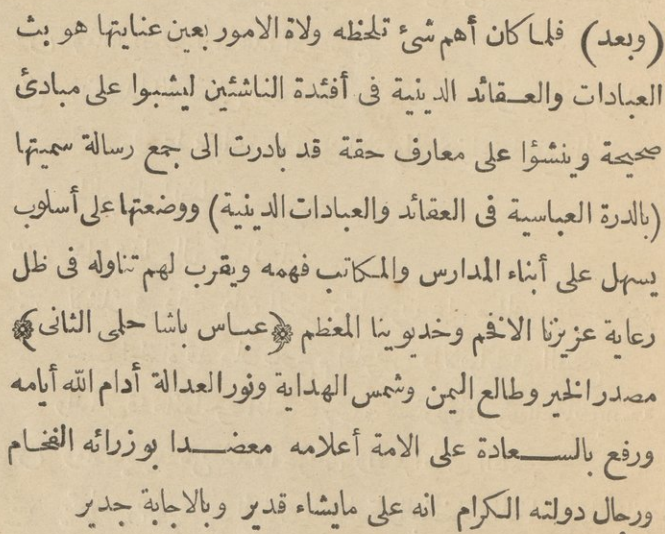 (وبعد) فلما كان أهم شئ تلحظه ولاة الامور بعين عنايتها هو بث
العبادات والعقائد الدينية فى أفئدة الناشئين ليشبوا على مبادئ
صحيحة وينشؤا على معارف حقة قد بادرت الى جمع رسالة سميتها
(بالدرة العباسية فى العقائد والعبادات الدينية) ووضعتها على أسلوب
يسهل على أبناء المدارس والمكاتب فهمه ويقرب لهم تناوله فى ظل
رعاية عزيزنا الافخم وخديوينا المعظم ﴿عباس باشا حلمى الثانى﴾
مصدر الخير وطالع اليمن وشمس الهداية ونور العدالة أدام الله أيامه
ورفع بالسعادة على الامة أعلامه معضدا بوزرائه الفخام
ورجال دولته الكرام انه على مايشاء قدير وبالاجابة جدير